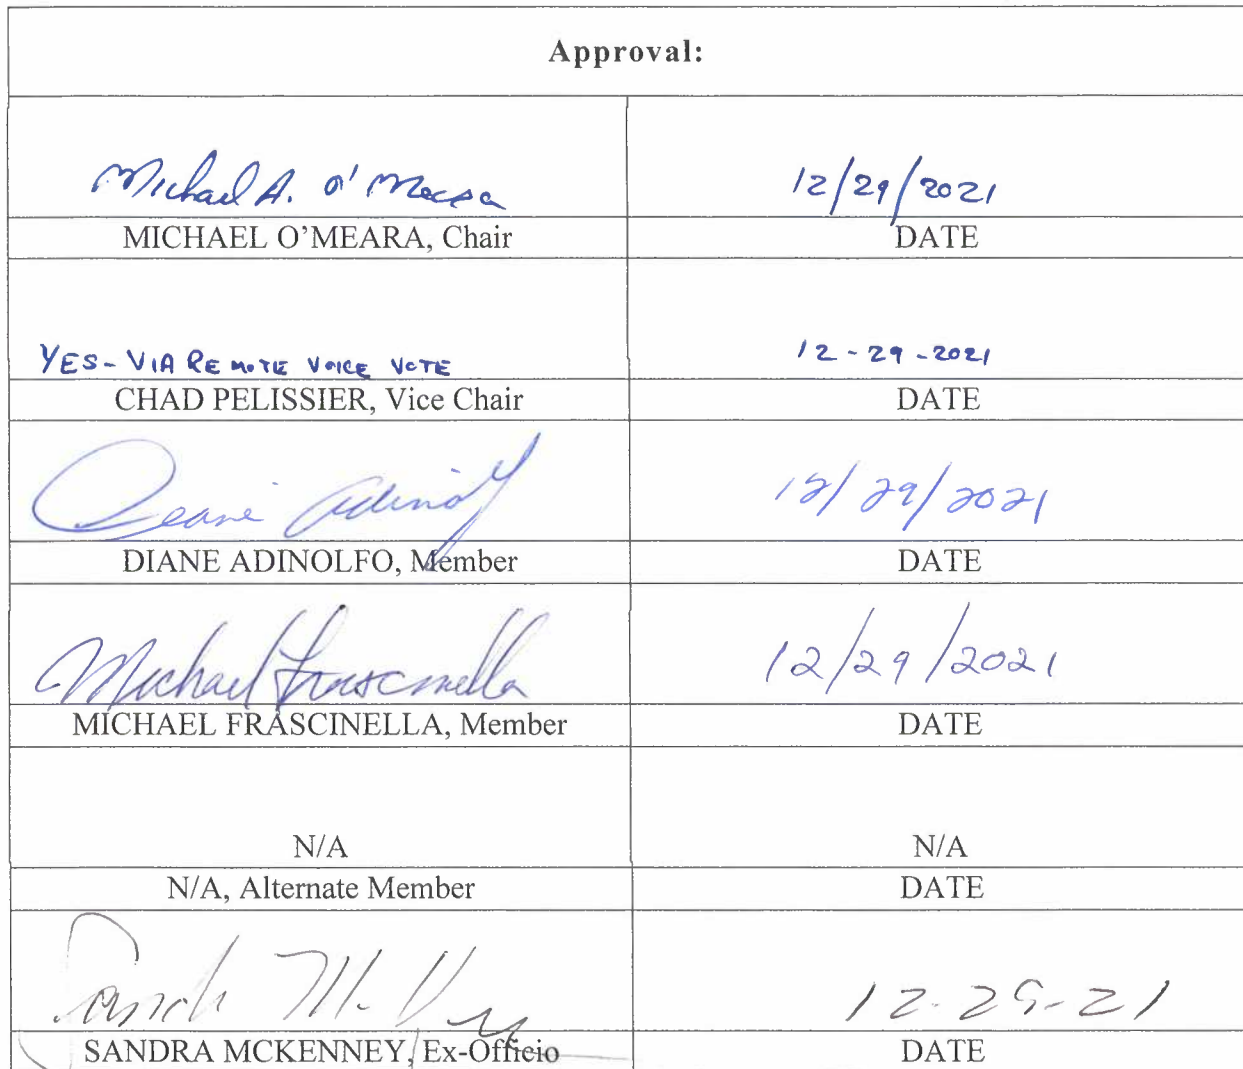 Approval:
Michael A. O'Meara 12/29/2021
MICHAEL O'MEARA, Chair DATE
YES - VIA REMOTE VOICE VOTE 12-29-2021
CHAD PELISSIER, Vice Chair DATE
Diane Adinolf 12/29/2021
DIANE ADINOLFO, Member DATE
Michael Frascinella 12/29/2021
MICHAEL FRASCINELLA, Member DATE
N/A N/A
N/A, Alternate Member DATE
Sandr McKey 12-29-21
SANDRA MCKENNEY, Ex-Officio DATE